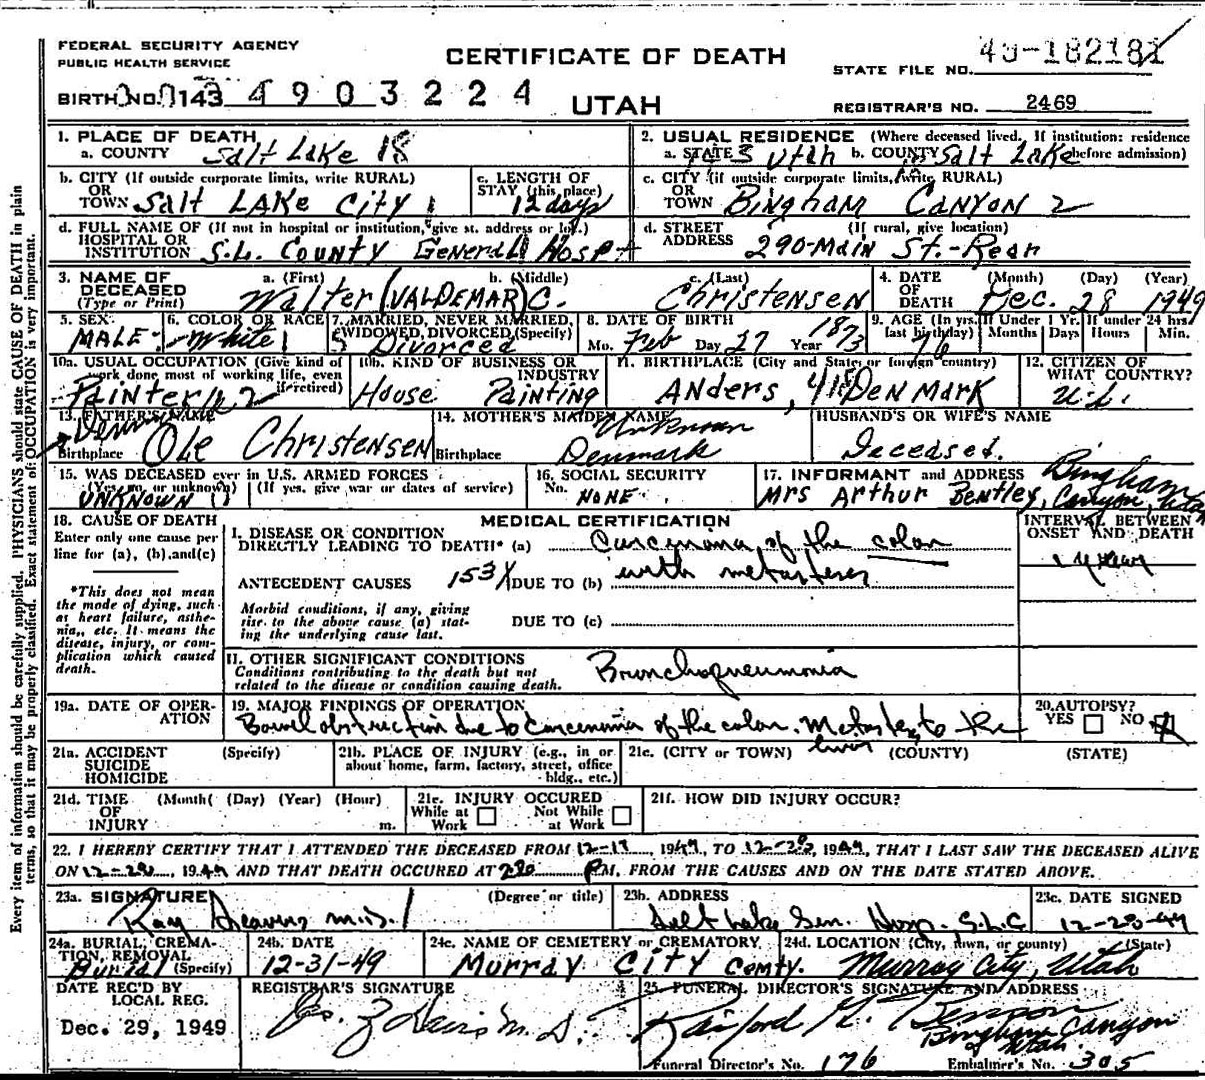 FEDERAL SECURITY AGENCY
PUBLIC HEALTH SERVICE
CERTIFICATE OF DEATH
UTAH
BIRTH NO. 143 4903224
STATE FILE NO. 49-182181
REGISTRAR'S NO. 2469
1. PLACE OF DEATH
a. COUNTY Salt Lake 18
2. USUAL RESIDENCE (Where deceased lived. If institution: residence before admission)
a. STATE Utah b. COUNTY Salt Lake
b. CITY (If outside corporate limits, write RURAL)
OR
TOWN Salt LAKE City 1
c. LENGTH OF
STAY (this place)
12 days
c. CITY (if outside corporate limits, write RURAL)
OR
TOWN Bingham CANYON 2
d. FULL NAME OF (If not in hospital or institution, give st. address or loc.)
HOSPITAL OR
INSTITUTION S.L. County General Hosp.
d. STREET (If rural, give location)
ADDRESS 290-Main St.-Rear
3. NAME OF DECEASED
(Type or Print)
a. (First) b. (Middle) c. (Last)
Walter (VALDEMAR) C. Christensen
4. DATE OF DEATH (Month) (Day) (Year)
Dec. 28 1949
5. SEX
MALE-
6. COLOR OR RACE
White 1
7. MARRIED, NEVER MARRIED,
WIDOWED, DIVORCED (Specify)
5 Divorced
8. DATE OF BIRTH
Mo. Feb Day 27 Year 1873
9. AGE (In yrs. last birthday) If Under 1 Yr. If under 24 hrs.
Months Days Hours Min.
76
10a. USUAL OCCUPATION (Give kind of
work done most of working life, even
if retired)
Painter
10b. KIND OF BUSINESS OR
INDUSTRY
House Painting
11. BIRTHPLACE (City and State or foreign country)
Anders, DenMark
12. CITIZEN OF
WHAT COUNTRY?
13. FATHER'S NAME
Ole Christensen
Birthplace
14. MOTHER'S MAIDEN NAME
Unknown
Birthplace Denmark
HUSBAND'S OR WIFE'S NAME
Deceased.
15. WAS DECEASED ever in U.S. ARMED FORCES
(Yes, no, or unknown) (If yes, give war or dates of service)
UNKNOWN
16. SOCIAL SECURITY
No. NONE
17. INFORMANT and ADDRESS
Mrs Arthur Bentley, Bingham Canyon, Utah
18. CAUSE OF DEATH
Enter only one cause per
line for (a), (b), and (c)
*This does not mean
the mode of dying, such
as heart failure, asthe-
nia, etc. It means the
disease, injury, or com-
plication which caused
death.
MEDICAL CERTIFICATION
INTERVAL BETWEEN
ONSET AND DEATH
I. DISEASE OR CONDITION
DIRECTLY LEADING TO DEATH* (a) Carcinoma of the colon
1 year
ANTECEDENT CAUSES 153X DUE TO (b) with metastases
Morbid conditions, if any, giving
rise to the above cause (a) stat-
ing the underlying cause last.
DUE TO (c)
II. OTHER SIGNIFICANT CONDITIONS
Conditions contributing to the death but not
related to the disease or condition causing death.
Bronchopneumonia
19a. DATE OF OPER-
ATION
19. MAJOR FINDINGS OF OPERATION
Bowel obstruction due to Carcinoma of the colon. Metastes to the
liver
20. AUTOPSY?
YES NO X
21a. ACCIDENT (Specify)
SUICIDE
HOMICIDE
21b. PLACE OF INJURY (e.g., in or
about home, farm, factory, street, office
bldg., etc.)
21c. (CITY or TOWN) (COUNTY) (STATE)
21d. TIME (Month) (Day) (Year) (Hour)
OF
INJURY m.
21e. INJURY OCCURED
While at Work Not While at Work
21f. HOW DID INJURY OCCUR?
22. I HEREBY CERTIFY THAT I ATTENDED THE DECEASED FROM 12-17, 1949, TO 12-28, 1949, THAT I LAST SAW THE DECEASED ALIVE
ON 12-28, 1949 AND THAT DEATH OCCURED AT 2:30 P.M. FROM THE CAUSES AND ON THE DATE STATED ABOVE.
23a. SIGNATURE (Degree or title)
Ray M.D.
23b. ADDRESS
Salt Lake Gen. Hosp., S.L.C
23c. DATE SIGNED
12-28-49
24a. BURIAL, CREMA-
TION, REMOVAL
Burial (Specify)
24b. DATE
12-31-49
24c. NAME OF CEMETERY or CREMATORY
Murray City Cemty.
24d. LOCATION (City, town, or county) (State)
Murray City, Utah
DATE REC'D BY
LOCAL REG.
Dec. 29, 1949
REGISTRAR'S SIGNATURE
M.D.
25. FUNERAL DIRECTOR'S SIGNATURE AND ADDRESS
Benson
Bingham Canyon
Utah.
Funeral Director's No. 176 Embalmer's No. 305
Every item of information should be carefully supplied. PHYSICIANS should state CAUSE OF DEATH in plain
terms, so that it may be properly classified. Exact statement of OCCUPATION is very important.